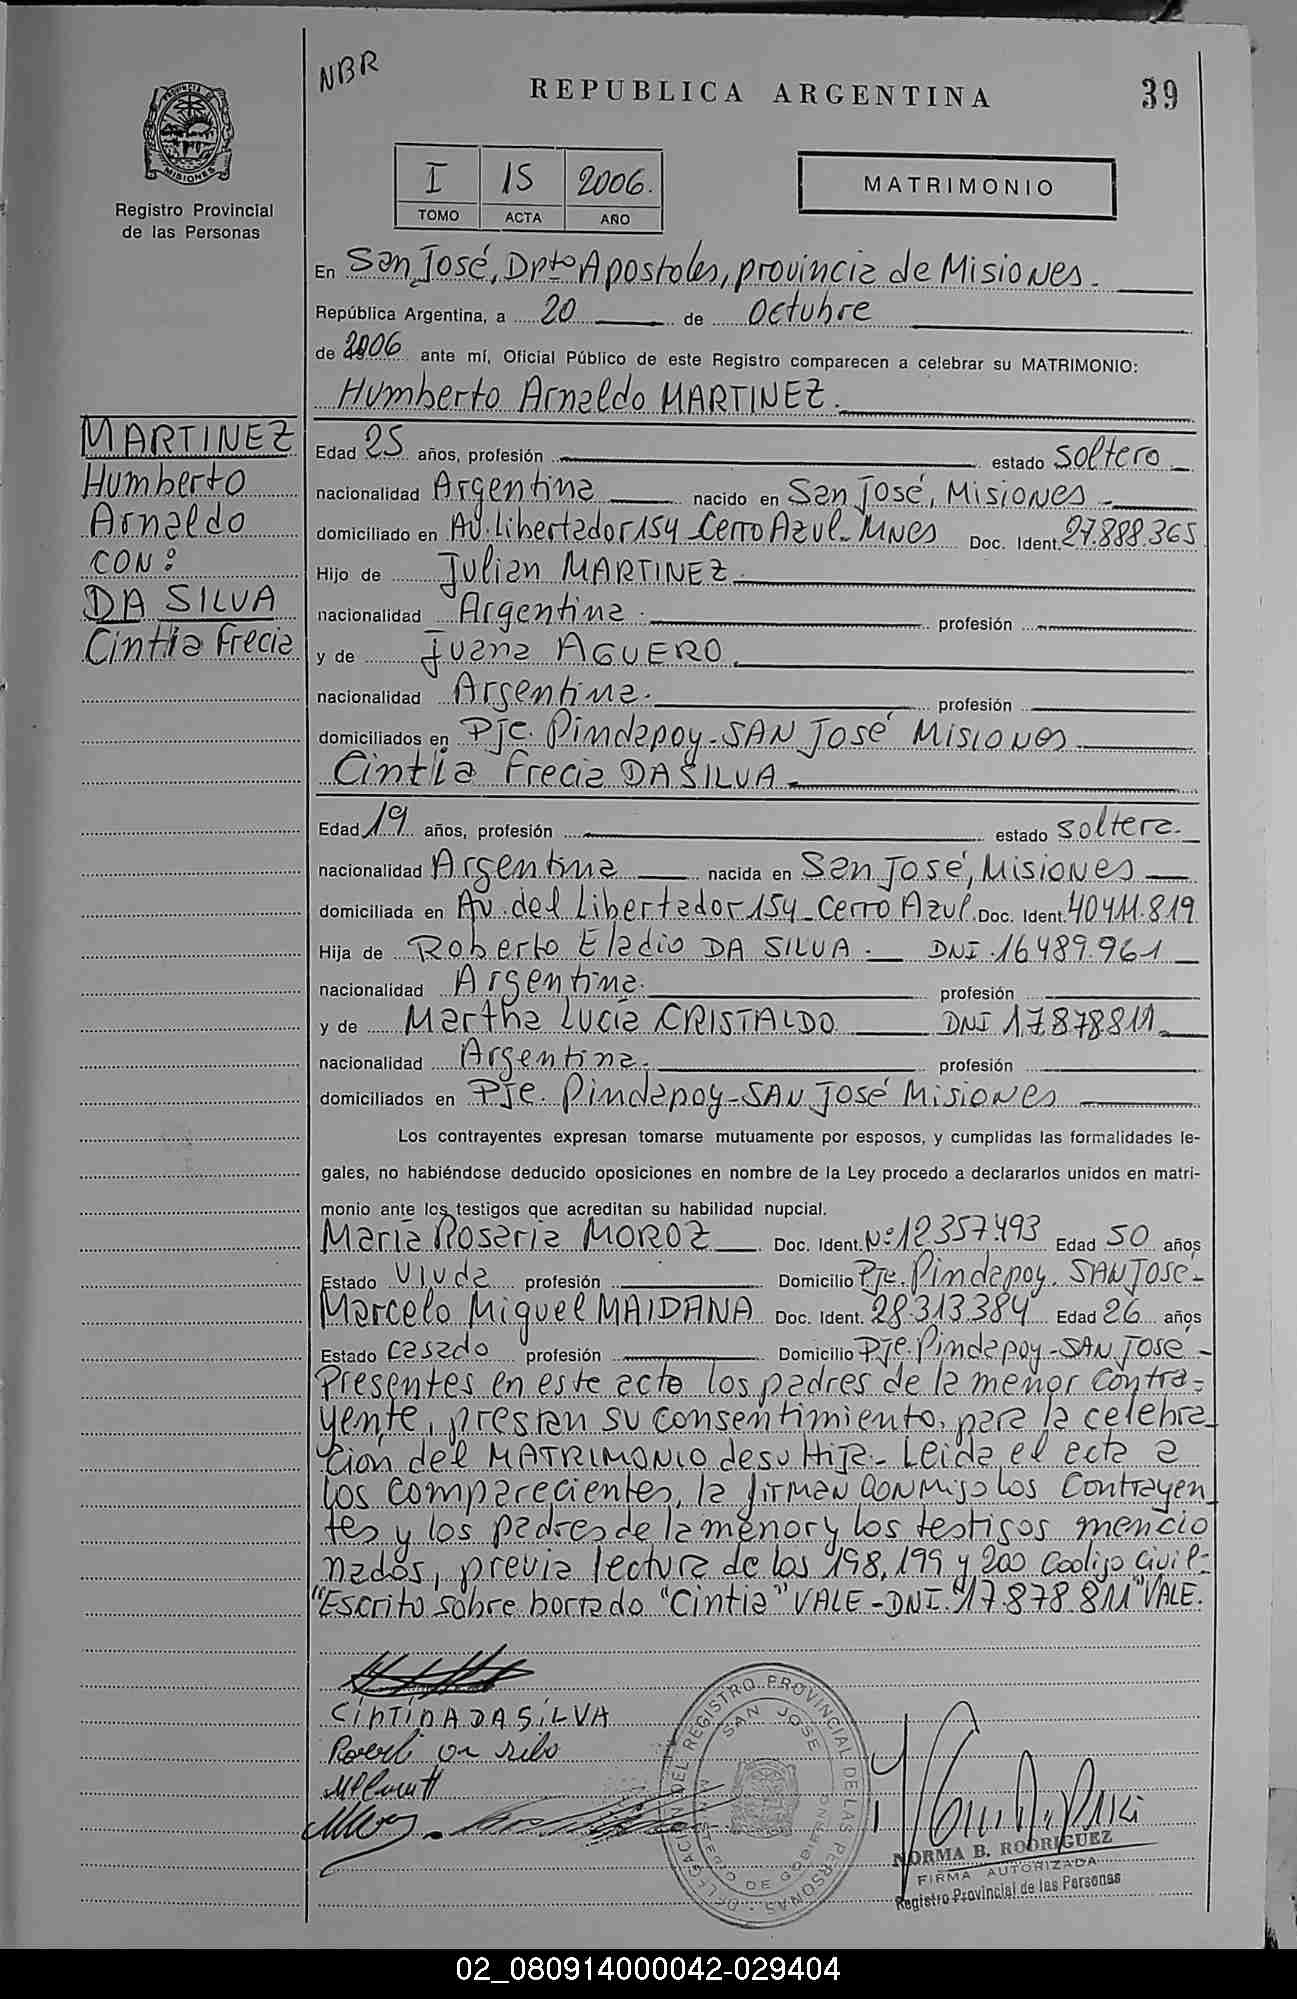 NBR
REPUBLICA ARGENTINA
39
PROVINCIA DE
MISIONES
Registro Provincial
de las Personas
I 15 2006.
TOMO ACTA AÑO
MATRIMONIO
En San José, Dpto Apostoles, provincia de Misiones.
República Argentina, a 20 de Octubre
de 2006 ante mí, Oficial Público de este Registro comparecen a celebrar su MATRIMONIO:
Humberto Arnaldo MARTINEZ.
MARTINEZ
Humberto
Arnaldo
CON:
DA SILVA
Cintia Frecia
Edad 25 años, profesión estado soltero
nacionalidad Argentina nacido en San José, Misiones
domiciliado en Av. Libertador 154 Cerro Azul - MNES Doc. Ident. 27.888.365
Hijo de Julian MARTINEZ.
nacionalidad Argentina. profesión
y de Juana AGUERO.
nacionalidad Argentina. profesión
domiciliados en Pje. Pindapoy - SAN José Misiones
Cintia Frecia DA SILVA.
Edad 19 años, profesión estado soltera.
nacionalidad Argentina nacida en San José, Misiones
domiciliada en Av. del Libertador 154 - Cerro Azul. Doc. Ident. 40411.819
Hija de Roberto Eladio DA SILVA. DNI. 16489.961
nacionalidad Argentina. profesión
y de Martha Lucia CRISTALDO DNI 17.878811
nacionalidad Argentina. profesión
domiciliados en Pje. Pindapoy - SAN José Misiones
Los contrayentes expresan tomarse mutuamente por esposos, y cumplidas las formalidades le-
gales, no habiéndose deducido oposiciones en nombre de la Ley procedo a declararlos unidos en matri-
monio ante los testigos que acreditan su habilidad nupcial.
María Rosaria MOROZ Doc. Ident. Nº 12357.493 Edad 50 años
Estado Viuda profesión Domicilio Pje. Pindapoy. SAN José -
Marcelo Miguel MAIDANA Doc. Ident. 28.313.384 Edad 26 años
Estado casado profesión Domicilio Pje. Pindapoy - SAN José -
Presentes en este acto los padres de la menor Contra-
yente, prestan su consentimiento, para la celebra
ción del MATRIMONIO de su Hija - Leida el acta a
los comparecientes, la firman CONMigo los Contrayen
tes y los padres de la menor y los testigos mencio
nados, previa lectura de los 198, 199 y 200 Codigo Civil -
"Escrito sobre borrado "Cintia" VALE - DNI. "17.878.811" VALE.
CintinA DA SiLVA
DELEGACION DEL REGISTRO PROVINCIAL DE LAS PERSONAS
SAN JOSE
MINISTERIO DE GOBIERNO
NORMA B. RODRIGUEZ
FIRMA AUTORIZADA
Registro Provincial de las Personas
02_080914000042-029404